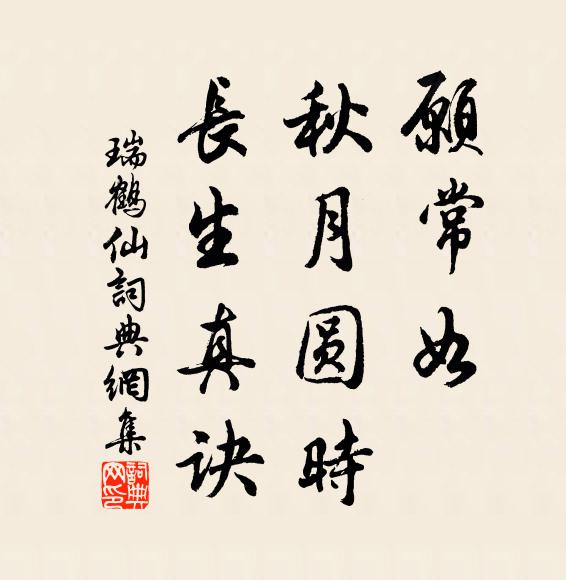 願常如
秋月圆時
長生真诀
瑞鶴仙詞典網集
詞典网印